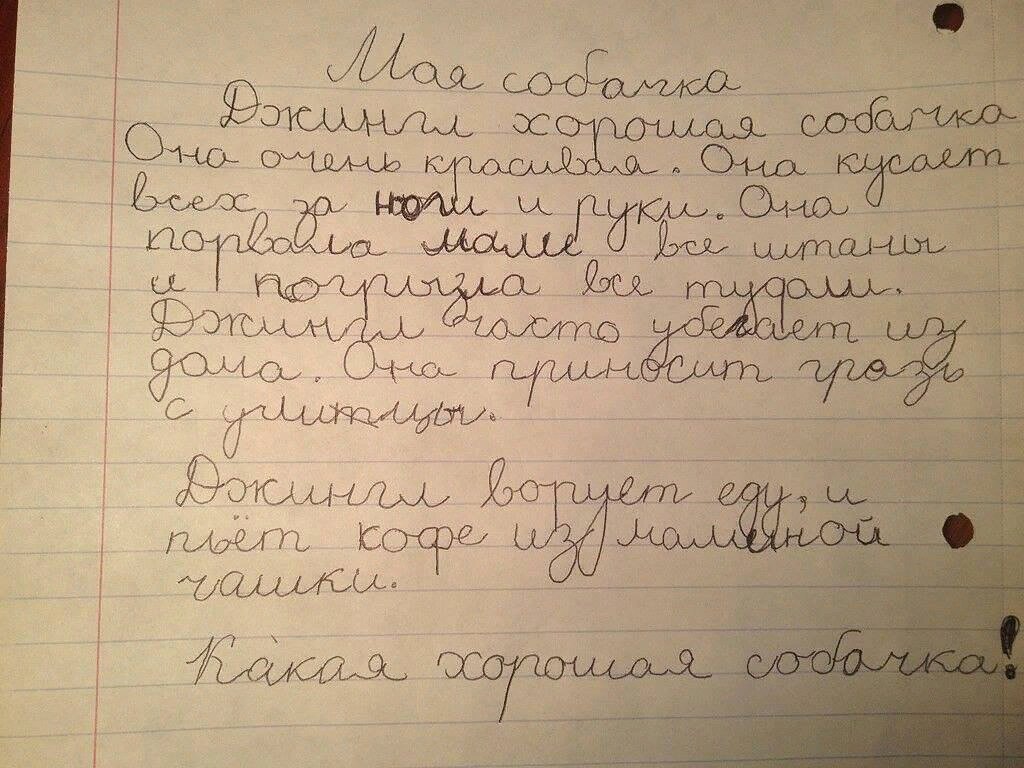 Мая собачка
Джингл хорошая собачка
Она очень красивая. Она кусает
всех за ноги и руки. Она
порвала маме все штаны
и погрызла все
Джингл часто убегает из
дома. Она приносит грязь
с
Джингл ворует еду, и
пьёт кофе из маминой
чашки.
Какая хорошая собачка!